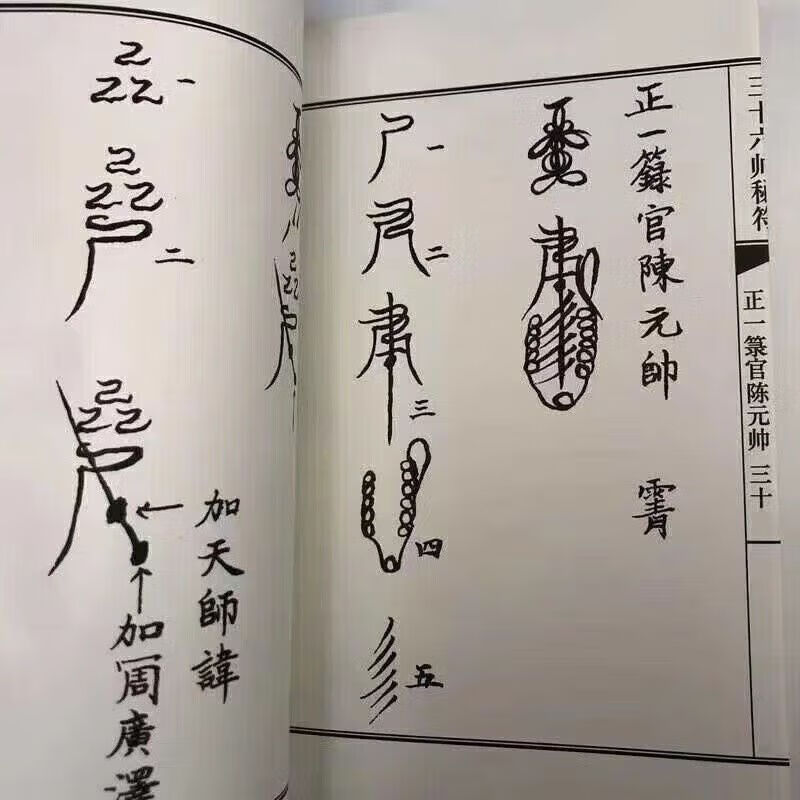 三十六帅秘符
正一箓官陈元帅 三十
正一籙官陳元帥
一
二
三
四
五
一
二
加天師諱
加周廣澤